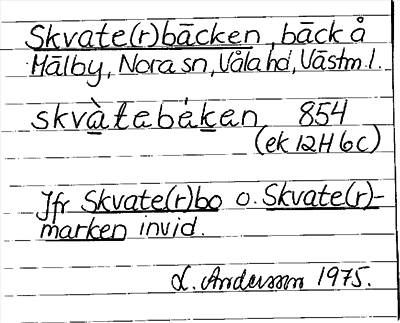 Skvate(r)bäcken, bäck å
Mälby, Nora sn, Våla hd, Västm.l.
skvàtebéken 854
(ek 12H 6c)
Jfr Skvate(r)bo o. Skvate(r)-
marken invid.
L. Andersson 1975.